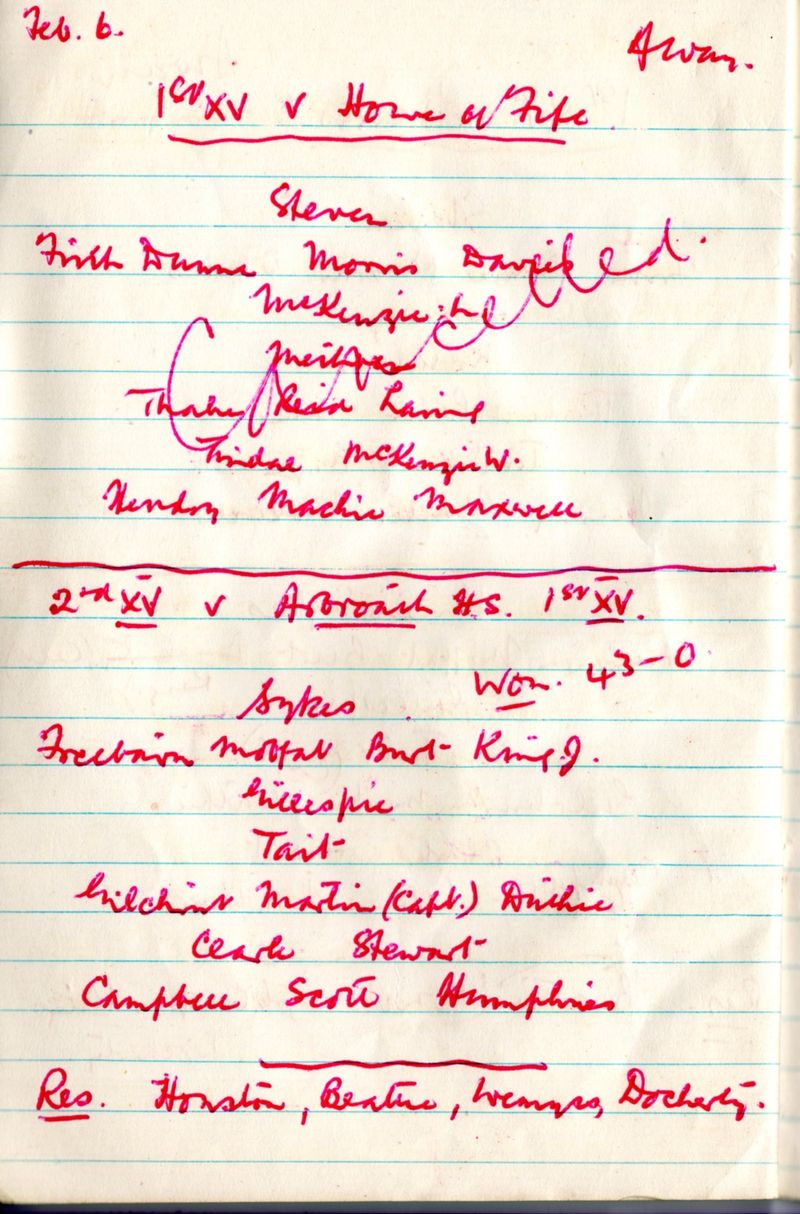 Feb. 6.
Away.
1st XV v Howe of Fife
Steven
Firth Dunne Morris Davies
McKenzie. L.
Cancelled.
Reid Laing
Tindal McKenzie W.
Hendry Mackie Maxwell
2nd XV v Arbroath H.S. 1st XV.
Won. 43-0
Sykes
Freebairn Moffat Burt King J.
Gillespie
Tait
Gilchrist Martin (Capt.) Duthie
Clark Stewart
Campbell Scott Humphries
Res. Houston, Beattie, Wemyss, Docherty.